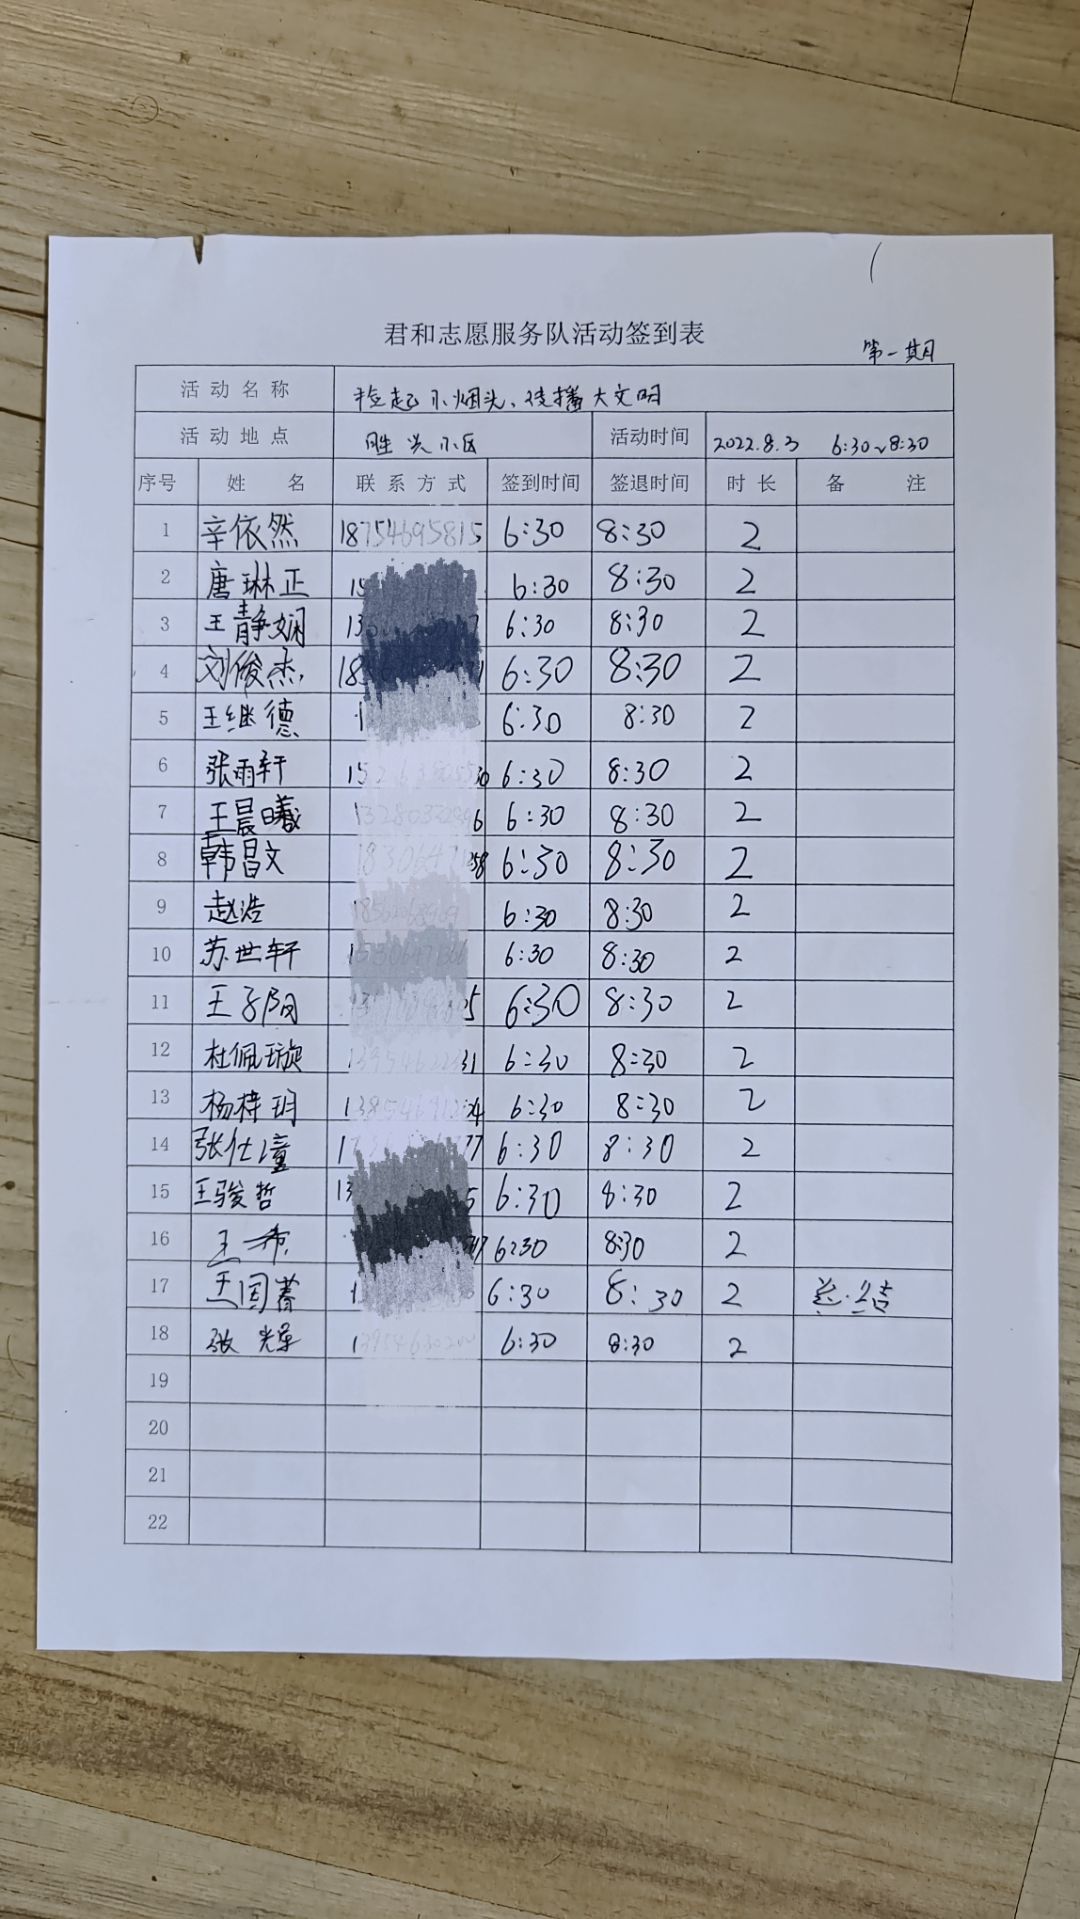 君和志愿服务队活动签到表
第一期
活动名称 捡起小烟头、传播大文明
活动地点 胜兴小区 活动时间 2022.8.3 6:30~8:30
序号 姓名 联系方式 签到时间 签退时间 时长 备注
1 辛依然 6:30 8:30 2
2 唐琳正 6:30 8:30 2
3 王静娴 6:30 8:30 2
4 刘俊杰 6:30 8:30 2
5 王继德 6:30 8:30 2
6 张雨轩 6:30 8:30 2
7 王晨曦 6:30 8:30 2
8 韩昌文 6:30 8:30 2
9 赵浩 6:30 8:30 2
10 苏世轩 6:30 8:30 2
11 王子阳 6:30 8:30 2
12 杜佩璇 6:30 8:30 2
13 杨梓玥 6:30 8:30 2
14 张仕潼 6:30 8:30 2
15 王骏哲 6:30 8:30 2
16 王希 6:30 8:30 2
17 王国蕃 6:30 8:30 2 总结
18 张辉 6:30 8:30 2
19
20
21
22